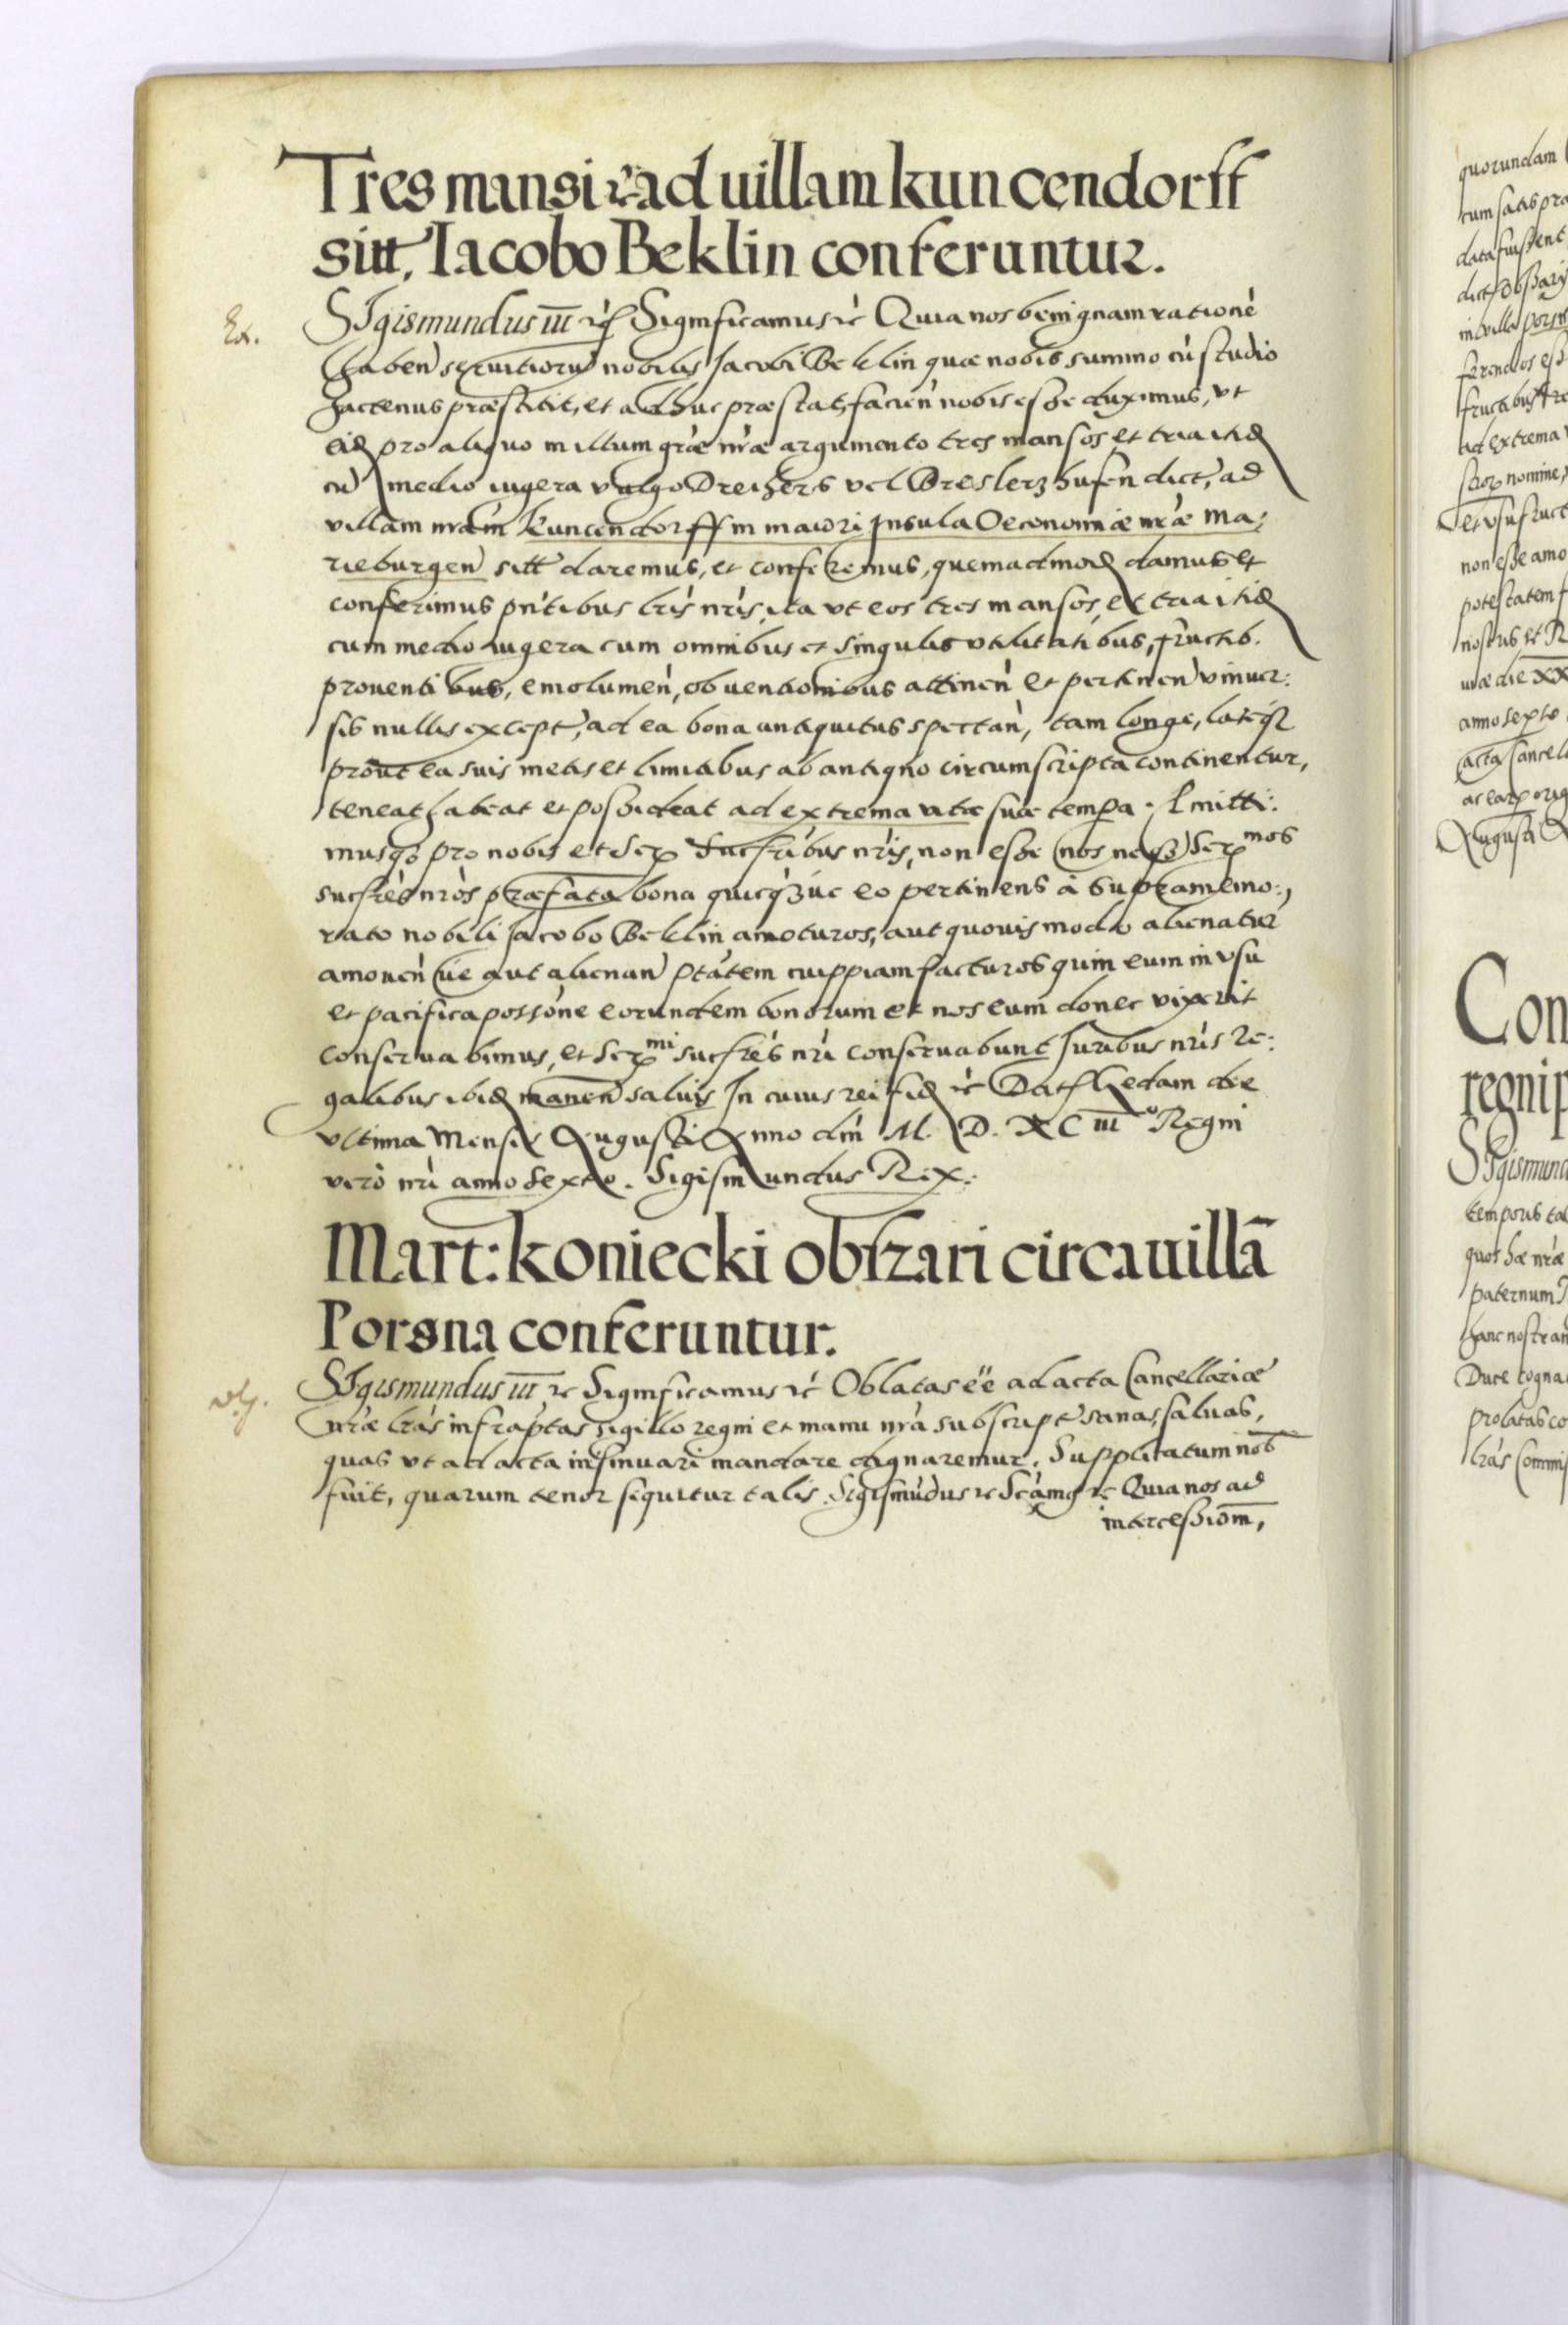 Tres mansi &c ad uillam kuncendorff
sitt, Iacobo Beklin conferuntur.
Ex.
SIgismundus iii &c Significamus &c Quia nos benignam rationē
haben̄ seruitiorū nobilis Jacobi Beklin quæ nobis summo cū studio
hactenus præstitit, et adhuc præstat, facien̄ nobis esse duximus, vt
eid pro aliquo in illum grae nrae argumento tres mansos et tria itid
cū medio iugera vulgo Dreihers vel Dreslerzhufen dict, ad
villam nram kuncendorff in maiori Insula Oeconomiæ nræ Ma:
rieburgen sitt daremus, et conferemus, quemadmod damus et
conferimus pntibus lris nris, ita vt eos tres mansos, et tria itid
cum medio iugera cum omnibus et singulis vtilitatibus, fructib.
prouentibus, emolumen, obuentionibus attinen et pertinen vniuer:
sis nullis except, ad ea bona antiquitus spectan, tam longe, lateq
prout ea suis metis et limitibus ab antiquo circumscripta continentur,
teneat habeat et possideat ad extrema vitæ suæ tempa. Pmitti:
musq pro nobis et Ser Sucribus nris, non esse (nos neq) Ser mos
sucres nros præfata bona quicq huc eo pertinens à supramemo:,
rato nobili Jacobo Beklin amoturos, aut quouis modo alienatur
amouen ue aut alienan ptatem cuippiam facturos quin eum in vsu
et pacifica possone eorundem bonorum et nos eum donec vixerit
conseruabimus, et Ser mi sucres nri conseruabunt Juribus nris Re:
galibus ibid manen saluis In cuius rei fid &c Dat Gedani die
vltima Mensis Augusti Anno dni M. D. XC iii° Regni
verò nri anno sexto. Sigismundus Rex.
Mart: koniecki obszari circa uillā
Porsna conferuntur.
SIgismundus iii &c Significamus &c Oblatas ēē ad acta Cancellariæ
nræ lras infraptas sigillo regni et manu nra subscript sanas, saluas,
quas vt ad acta insinuari mandare dignaremur. Supplicatum nob
fuit, quarum tenor sequitur talis. Sigismūdus &c Scamg &c Quia nos ad
intercessiom,
quorundam
cum satis pra
data fuissent
dict Obszary
in villa Porsn
ferendos ess
fructibus
ad extrema
nomine,
et vsufruct
non esse amo
potestatem f
nostris et R
die XX
anno sexto
acta Cancell
Augusti
Con
regni p
SIgismund
temporis tal
quos hæ nræ
paternum
hanc nostram
Duce cogna
prolatas co
lras Commis